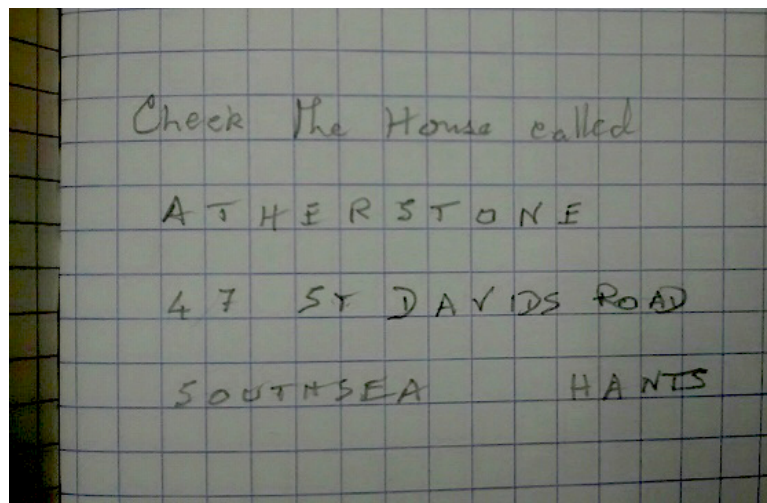 Check The House called
ATHERSTONE
47 ST DAVIDS ROAD
SOUTHSEA HANTS